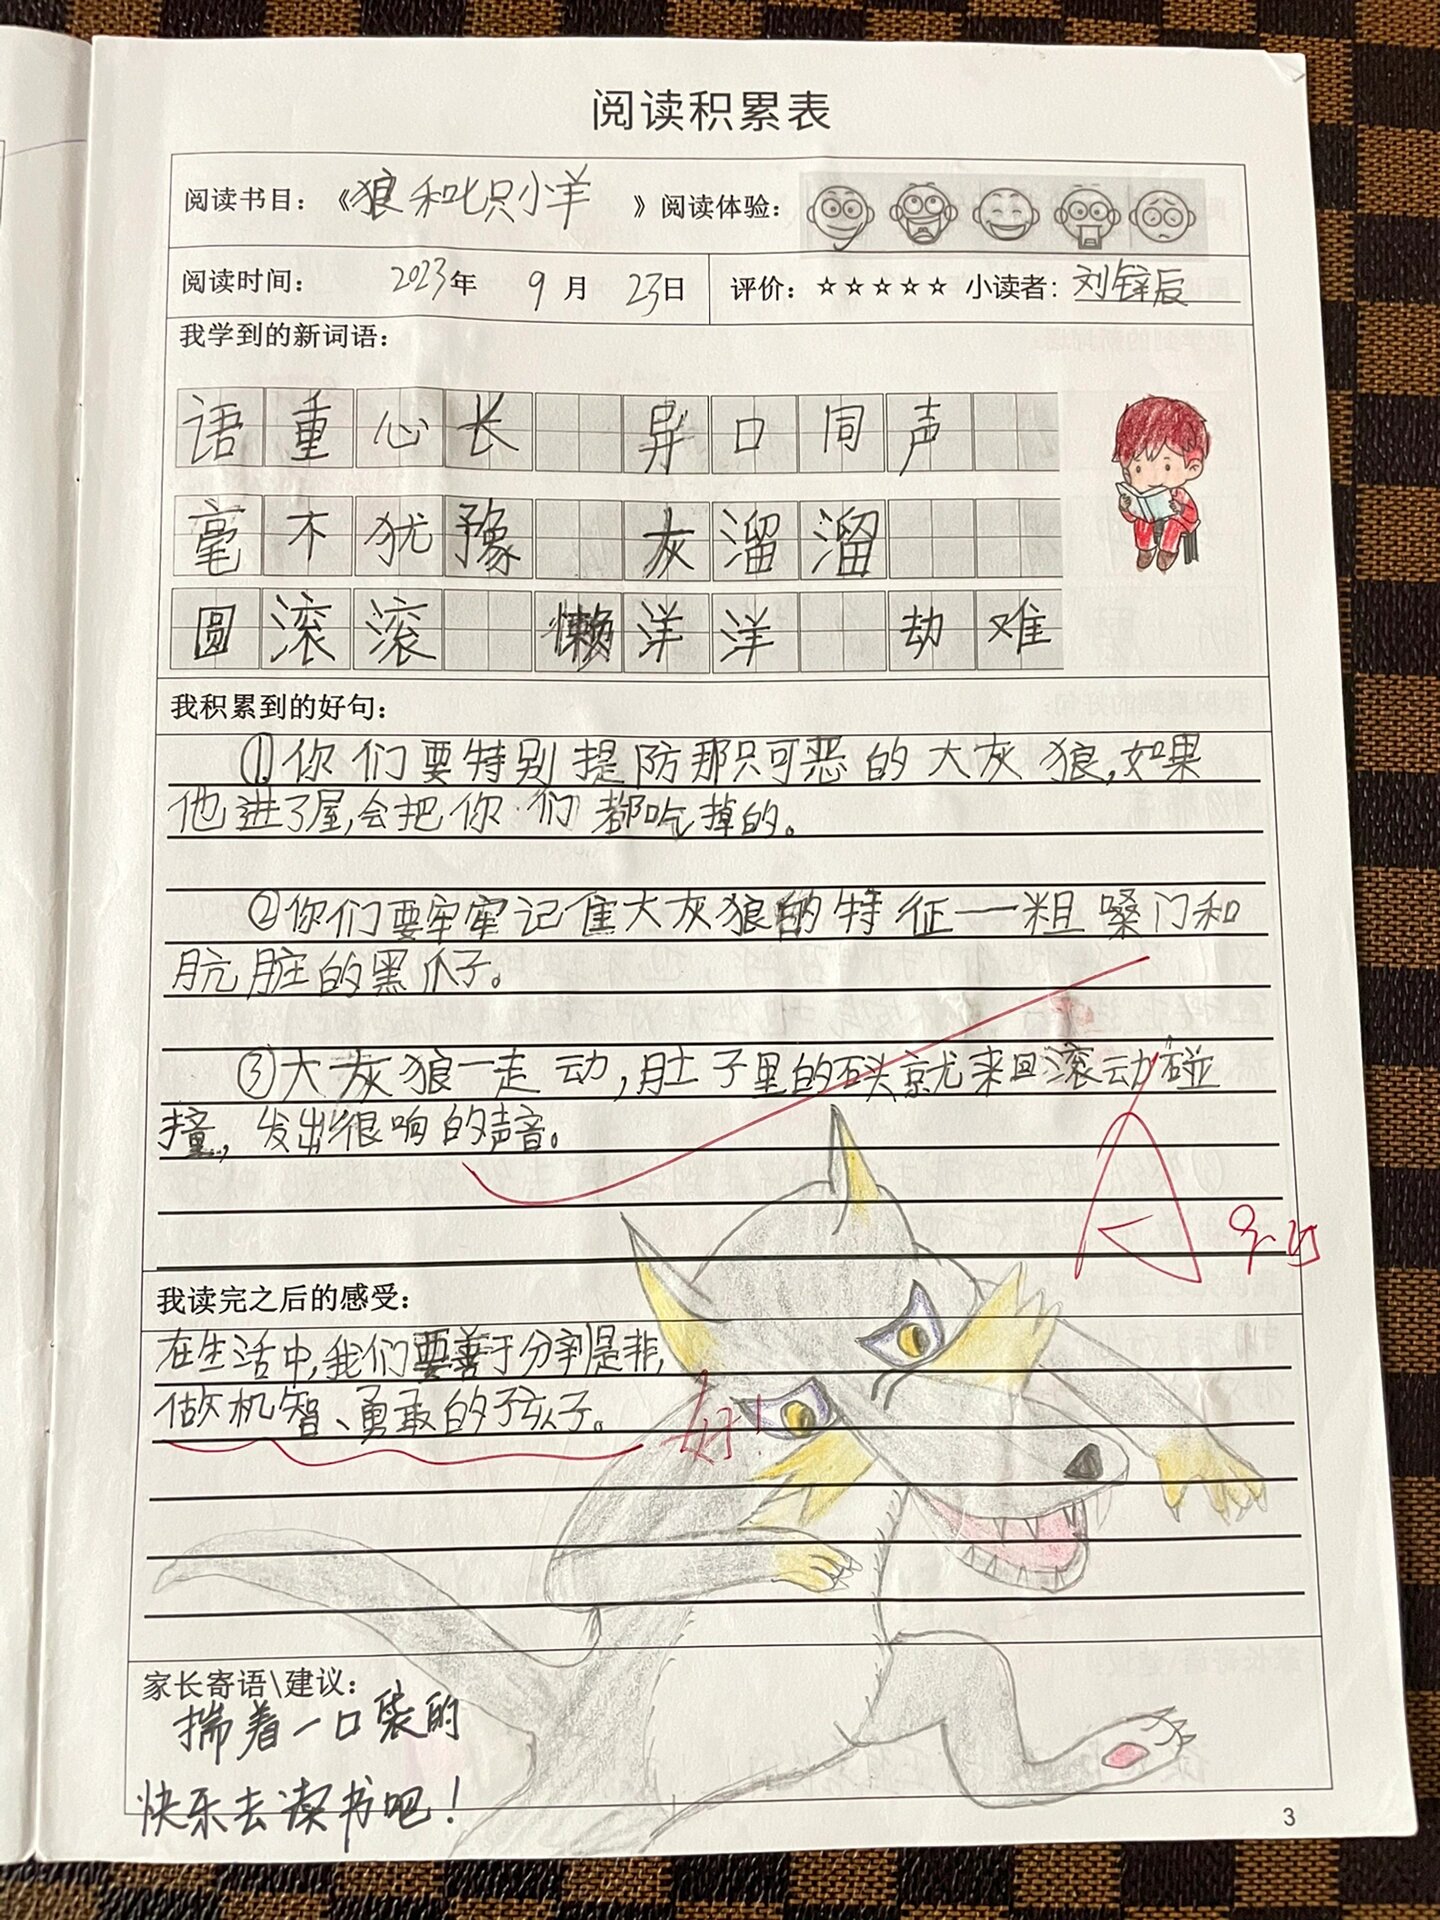 阅读积累表
阅读书目：《狼和七只小羊》阅读体验：
阅读时间： 2023年 9月 23日 评价：☆☆☆☆☆ 小读者：刘锌辰
我学到的新词语：
语重心长 异口同声
毫不犹豫 灰溜溜
圆滚滚 懒洋洋 劫难
我积累到的好句：
①你们要特别提防那只可恶的大灰狼,如果
他进了屋,会把你们都吃掉的。
②你们要牢牢记住大灰狼的特征——粗嗓门和
肮脏的黑爪子。
③大灰狼一走动,肚子里的石头就来回滚动碰
撞,发出很响的声音。
A
我读完之后的感受：
在生活中,我们要善于分辨是非,
做机智、勇敢的孩子。
好!
家长寄语\建议：
揣着一口袋的
快乐去读书吧!
3